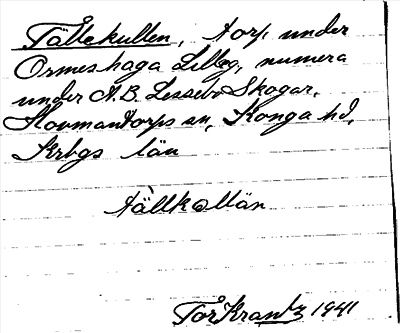 Tällekullen, torp under
Ormeshaga Lilleg, numera
under A.B. Lessebo Skogar.
Hovmantorps sn, Konga hd,
Krbgs län
tällkallän
Tor Krantz 1941